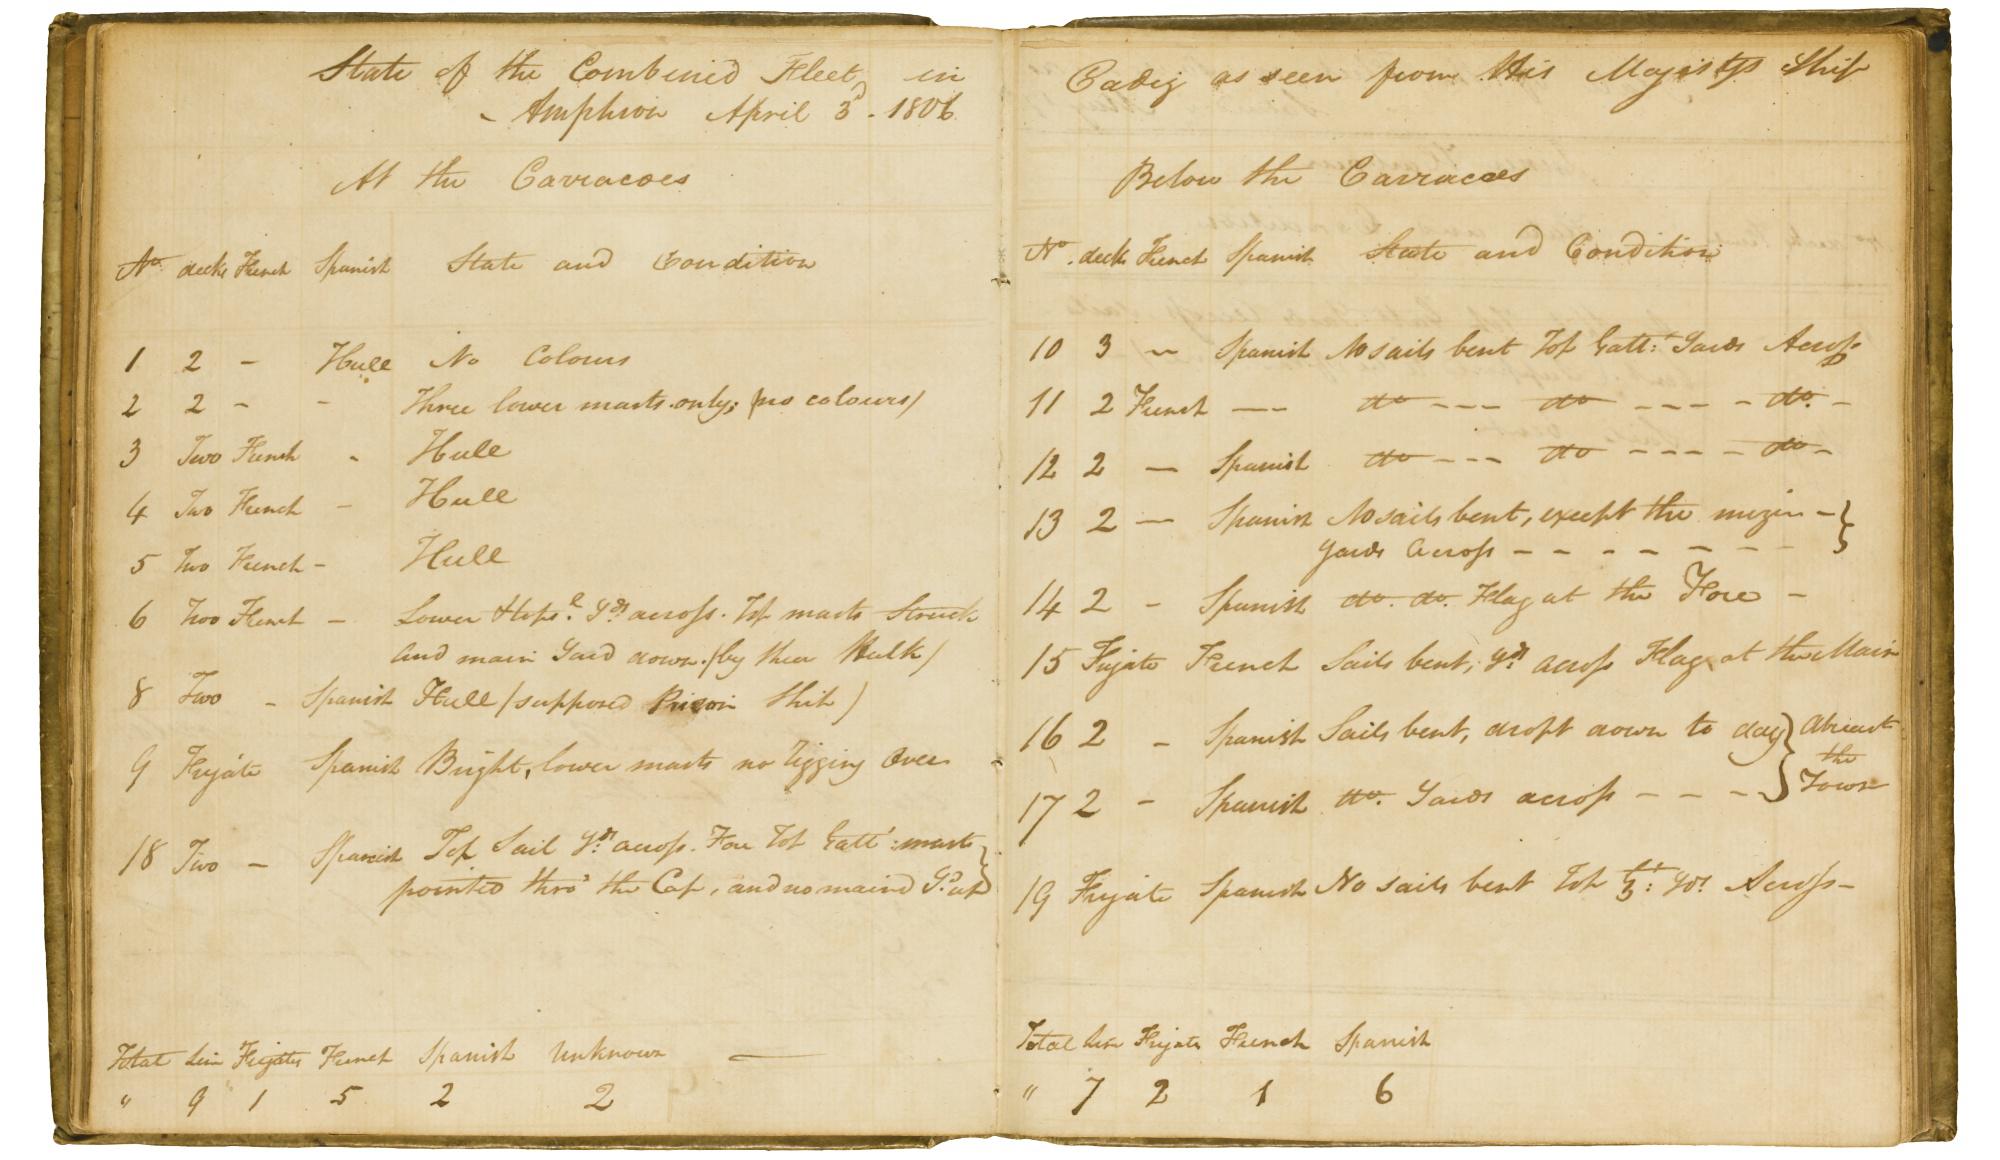 State of the Combined Fleet, in
- Amphion April 3d. 1806.
At the Carracoes
No. decks French Spanish State and Condition
1 2 - Hull No Colours
2 2 - - Three lower masts only; (no colours)
3 Two French - Hull
4 Two French - Hull
5 Two French - Hull
6 Two French - Lower & tops.l Yds. across. Top masts Struck
and main Yard down. (by their Hulk)
8 Two - Spanish Hull (supposed Prison Ship)
9 Frigate Spanish Bright, lower masts no rigging Over
18 Two - Spanish Top Sail Yds. across. Fore Top Gatt: masts
pointed thro' the Cap, and no maind Gd. up
Total Line Frigates French Spanish Unknown
" 9 1 5 2 2
Cadiz as seen from His Majestys Ship
Below the Carracoes
No. decks French Spanish State and Condition
10 3 - Spanish No sails bent Top Gatt: Yards Across
11 2 French -- do --- do ---- do. -
12 2 - Spanish do --- do ---- do -
13 2 - Spanish No sails bent, except the mizin -
Yards Across - - - - - - -
14 2 - Spanish do. do. Flag at the Fore -
15 Frigate French Sails bent, Yds across Flag at the Main
16 2 - Spanish Sails bent, dropt down to day } Abreast
the
17 2 - Spanish do. Yards across - - - - Town
19 Frigate Spanish No sails bent Top Yds. Across -
Total Line Frigate French Spanish
" 7 2 1 6